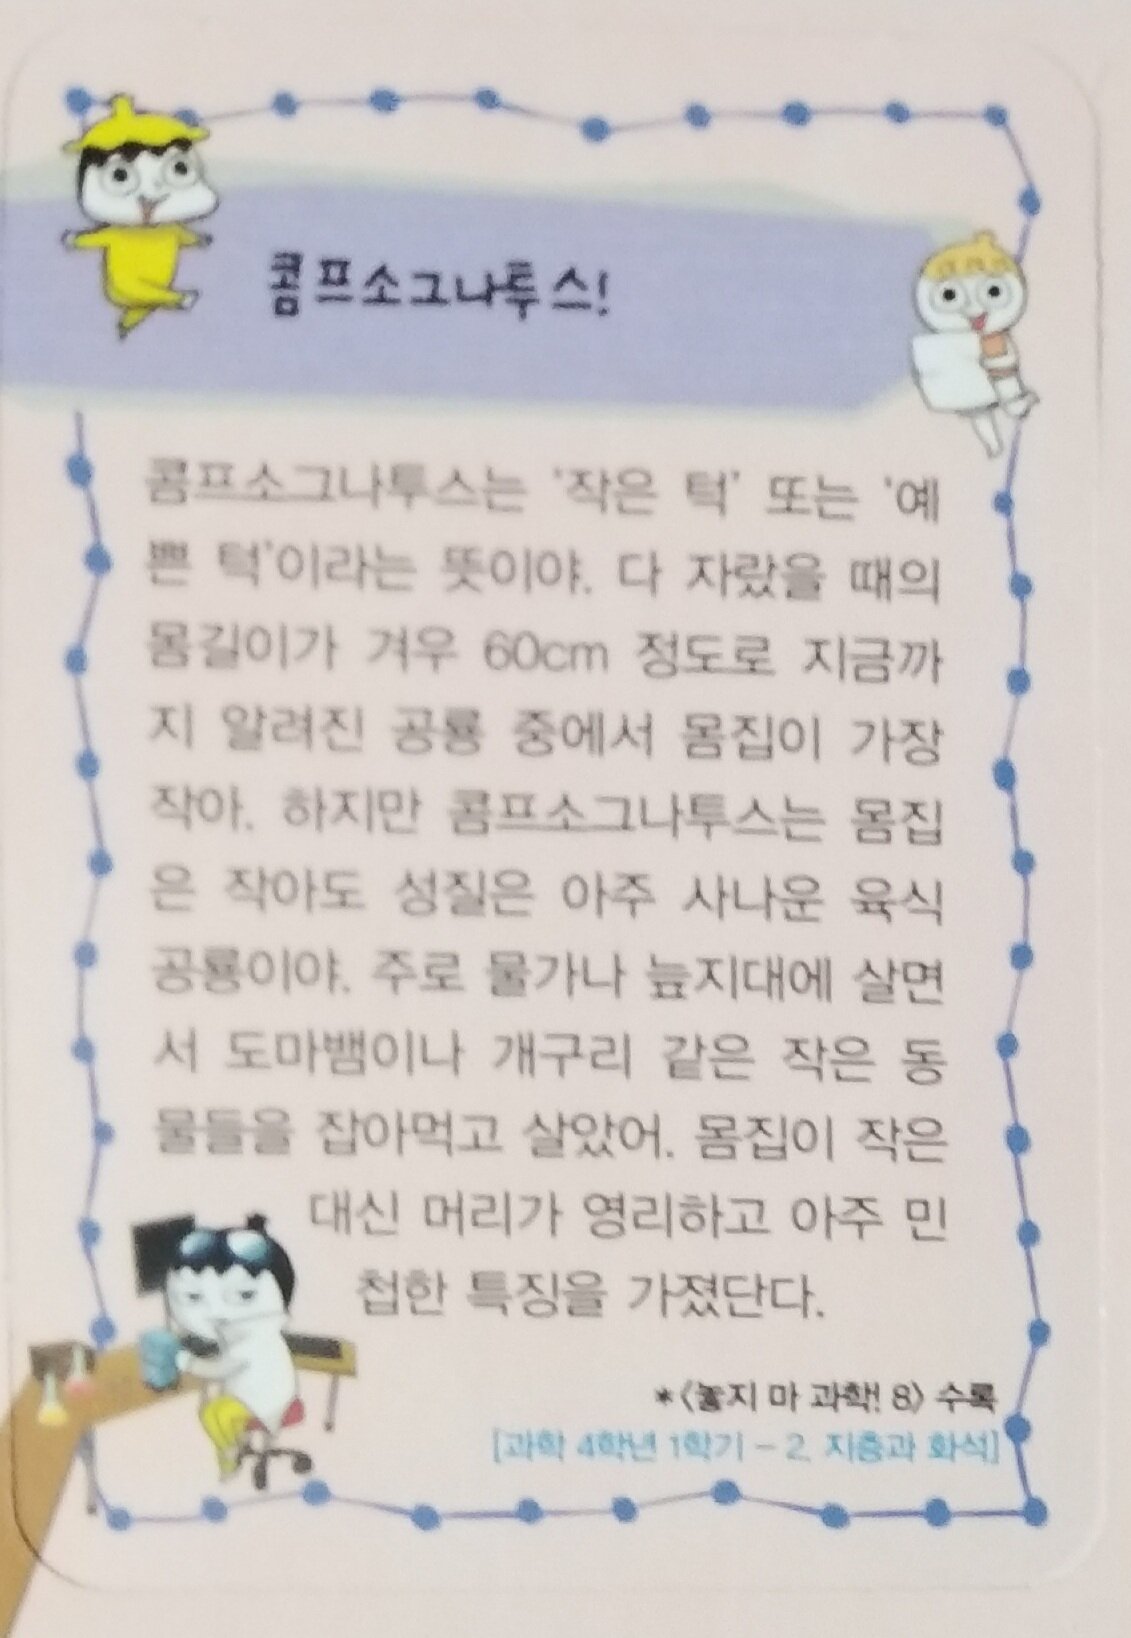 콤프소그나투스!
콤프소그나투스는 '작은 턱' 또는 '예
쁜 턱'이라는 뜻이야. 다 자랐을 때의
몸길이가 겨우 60cm 정도로 지금까
지 알려진 공룡 중에서 몸집이 가장
작아. 하지만 콤프소그나투스는 몸집
은 작아도 성질은 아주 사나운 육식
공룡이야. 주로 물가나 늪지대에 살면
서 도마뱀이나 개구리 같은 작은 동
물들을 잡아먹고 살았어. 몸집이 작은
대신 머리가 영리하고 아주 민
첩한 특징을 가졌단다.
*<놓지 마 과학! 8> 수록
[과학 4학년 1학기 - 2. 지층과 화석]